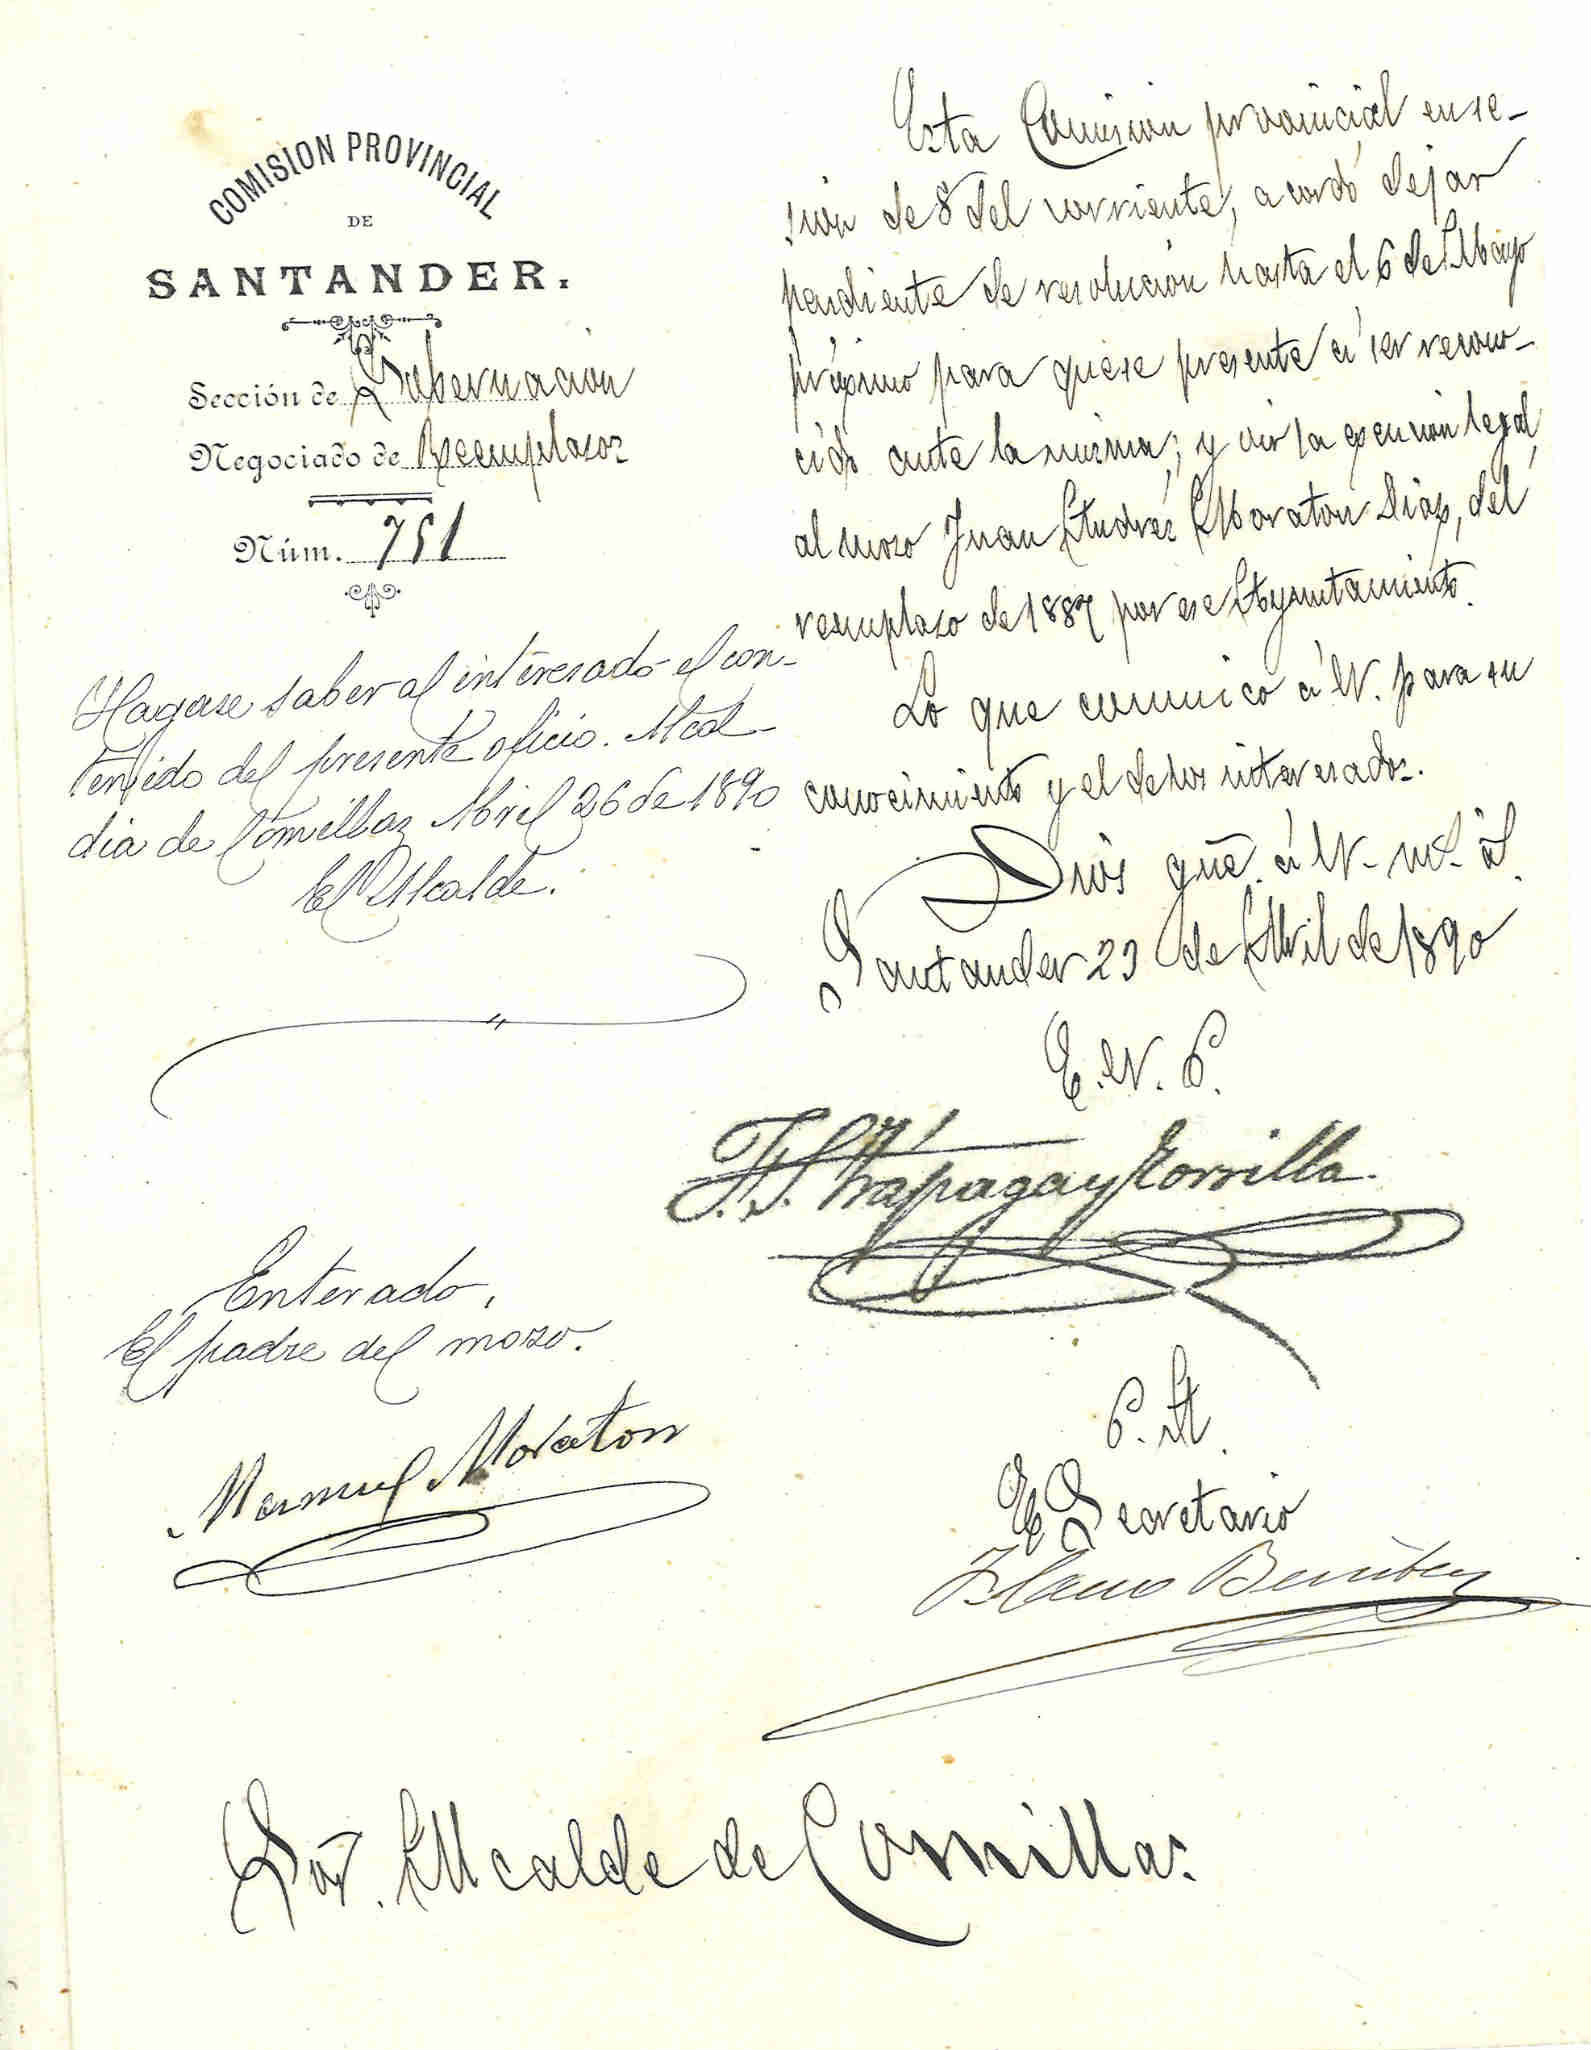 COMISION PROVINCIAL
DE
SANTANDER.
Sección de Gobernacion
Negociado de Reemplazos
Núm. 751
Esta Comision provincial en se-
sion de 8 del corriente, acordó dejar
pendiente de resolucion hasta el 6 de Mayo
próximo para que se presente á ser recono-
cido ante la misma; y oir la exencion legal,
al mozo Juan Andrés Moraton Diaz, del
reemplazo de 1887 por ese Ayuntamiento.
Lo que comunico á V. para su
conocimiento y el de los interesados.
Dios gue. á V. m.s a.s
Santander 23 de Abril de 1890
E. V. P.
Zorrilla.
P. A.
El Secretario
Hagase saber al interesado el con-
tenido del presente oficio. Alcal-
dia de Comillas Abril 26 de 1890
El Alcalde.
Enterado,
El padre del mozo.
Manuel Moraton
Sor. Alcalde de Comillas